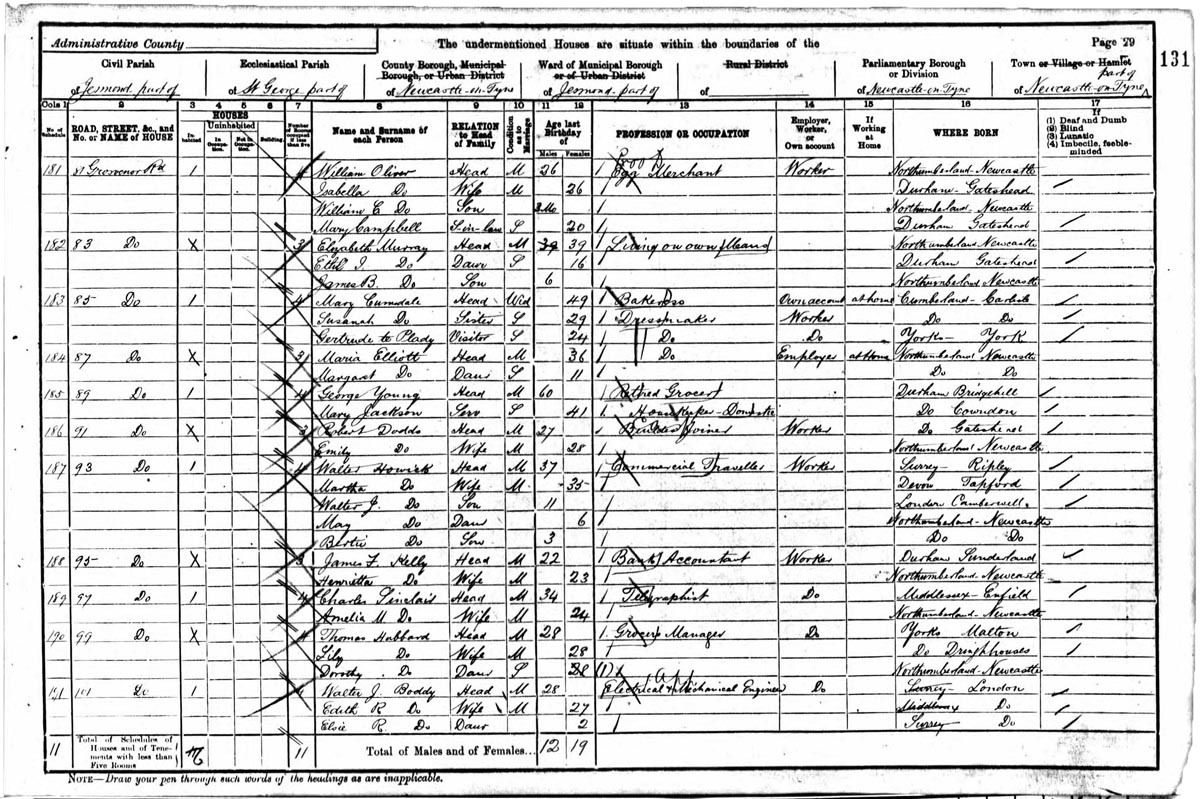 Administrative County The undermentioned Houses are situate within the boundaries of the Page 29
131
Civil Parish Ecclesiastical Parish County Borough, Municipal Borough, or Urban District Ward of Municipal Borough or of Urban District Rural District Parliamentary Borough or Division Town or Village or Hamlet
of Jesmond part of of St George part of of Newcastle-on-Tyne of Jesmond part of of of Newcastle-on-Tyne part of of Newcastle-on-Tyne
Cols 1 2 3 4 5 6 7 8 9 10 11 12 13 14 15 16 17
No. of Schedule ROAD, STREET, &c., and No. or NAME of HOUSE HOUSES Inhabited Uninhabited In Occupation Not in Occupation Building Number of Rooms occupied if less than five Name and Surname of each Person RELATION to Head of Family Condition as to Marriage Age last Birthday of Males Females PROFESSION OR OCCUPATION Employer, Worker, or Own account If Working at Home WHERE BORN If (1) Deaf and Dumb (2) Blind (3) Lunatic (4) Imbecile, feeble-minded
181 81 Grosvenor Rd 1 4 William Oliver Head M 26 Egg Merchant Worker Northumberland-Newcastle
Isabella Do Wife M 26 Durham-Gateshead
William E Do Son 3 Mo Northumberland-Newcastle
Mary Campbell S.-in-law S 20 Durham Gateshead
182 83 Do X 3 Elizabeth Murray Head M 39 39 Living on own Means Northumberland Newcastle
Ethel I. Do Daur S 16 Durham Gateshead
James B. Do Son 6 Northumberland Newcastle
183 85 Do 1 4 Mary Head Wid 49 Baker Own account at home Cumberland-Carlisle
Susanah Do Sister S 29 Dressmaker Worker Do Do
Gertrude Visitor S 24 Do Do Yorks- York
184 87 Do X 3 Maria Elliott Head M 36 Do Employer at Home Northumberland Newcastle
Margaret Do Daur S 11 Do Do
185 89 Do 1 4 George Young Head M 60 Retired Grocer Durham
Mary Jackson Serv S 41 Housekeeper-Domestic Do Cowndon
186 91 Do X 3 Robert Dodds Head M 27 Builders Joiner Worker Do Gateshead
Emily Do Wife M 28 Northumberland Newcastle
187 93 Do 1 4 Walter Howick Head M 37 Commercial Traveller Worker Surrey-Ripley
Martha Do Wife M 35 Devon Tapford
Walter J. Do Son 11 London Camberwell
May Do Daur 6 Northumberland-Newcastle
Bertie Do Son 3 Do Do
188 95 Do X 3 James F. Kelly Head M 22 Bank Accountant Worker Durham Sunderland
Henrietta Do Wife M 23 Northumberland-Newcastle
189 97 Do 1 4 Charles Sinclair Head M 34 Telegraphist Do Middlessex-Enfield
Amelia M Do Wife M 24 Northumberland-Newcastle
190 99 Do X 4 Thomas Hubbard Head M 28 Grocers Manager Do Yorks Malton
Lily Do Wife M 28 Do Dringhouses
Dorothy Do Daur S (1) Northumberland-Newcastle
191 101 Do 1 Walter J. Boddy Head M 28 Electrical & Mechanical Engineer Do Surrey-London
Edith R Do Wife M 27 Middlesex Do
Elsie R. Do Daur 2 Surrey Do
11 Total of Schedules of Houses and of Tenements with less than Five Rooms 11 Total of Males and of Females... 12 19
NOTE—Draw your pen through such words of the headings as are inapplicable.